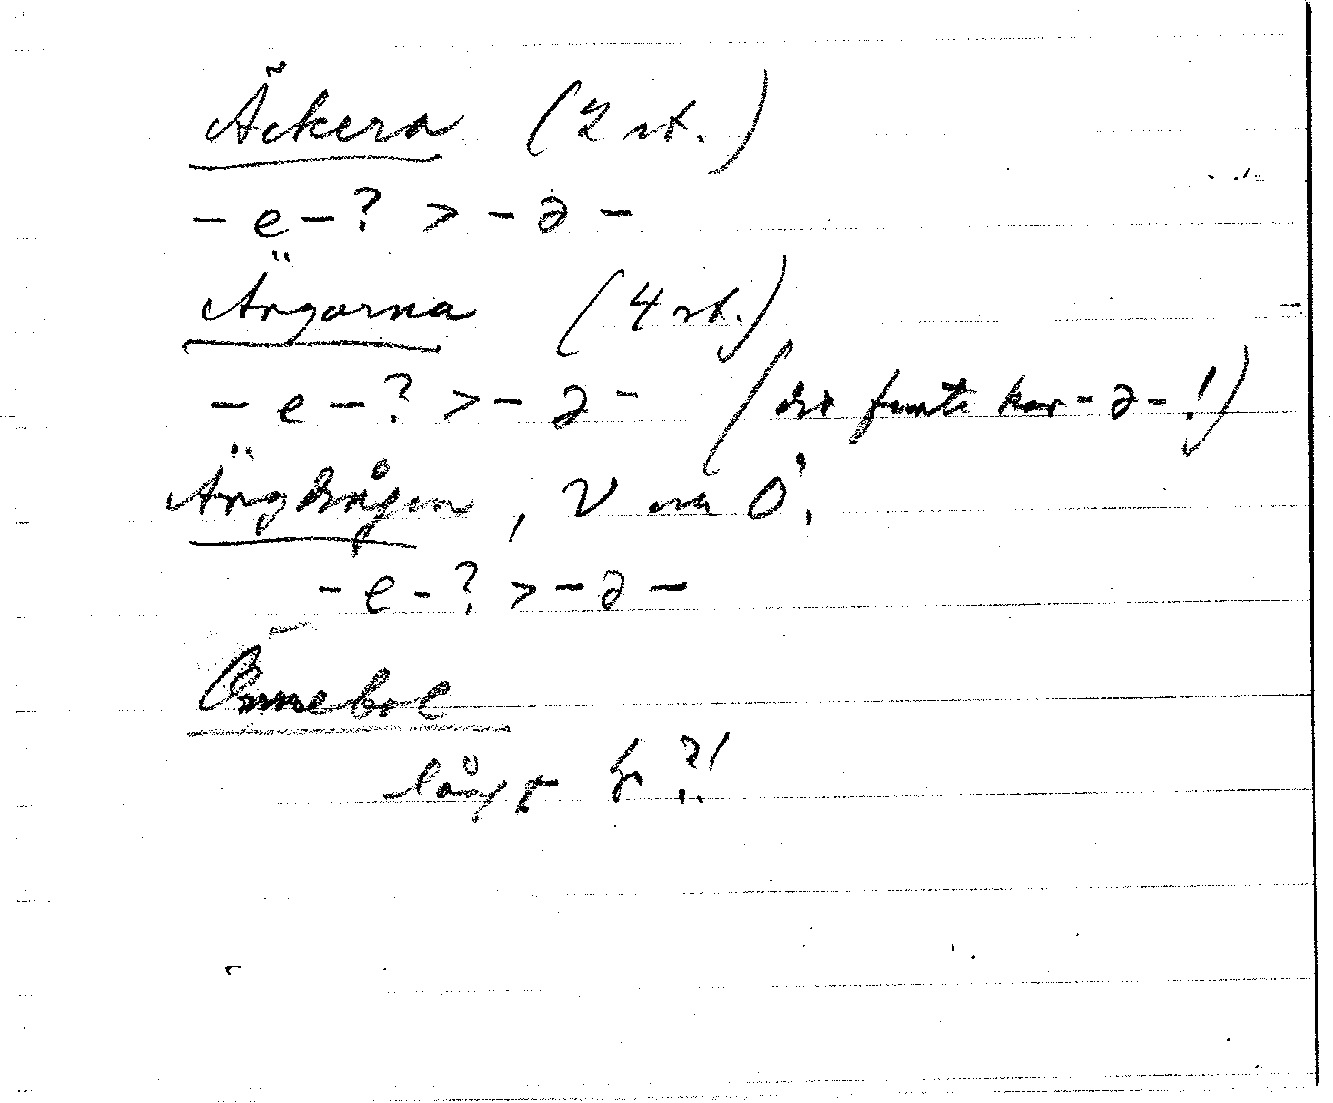 Äckera (2 st.)
- e - ? > - ə -
Ängarna (4 st.)
- e - ? > - ə - (det femte har - ə - !)
Ängbågen, V och Ö.
- e - ? > - ə -
Önnebol
långt ?!